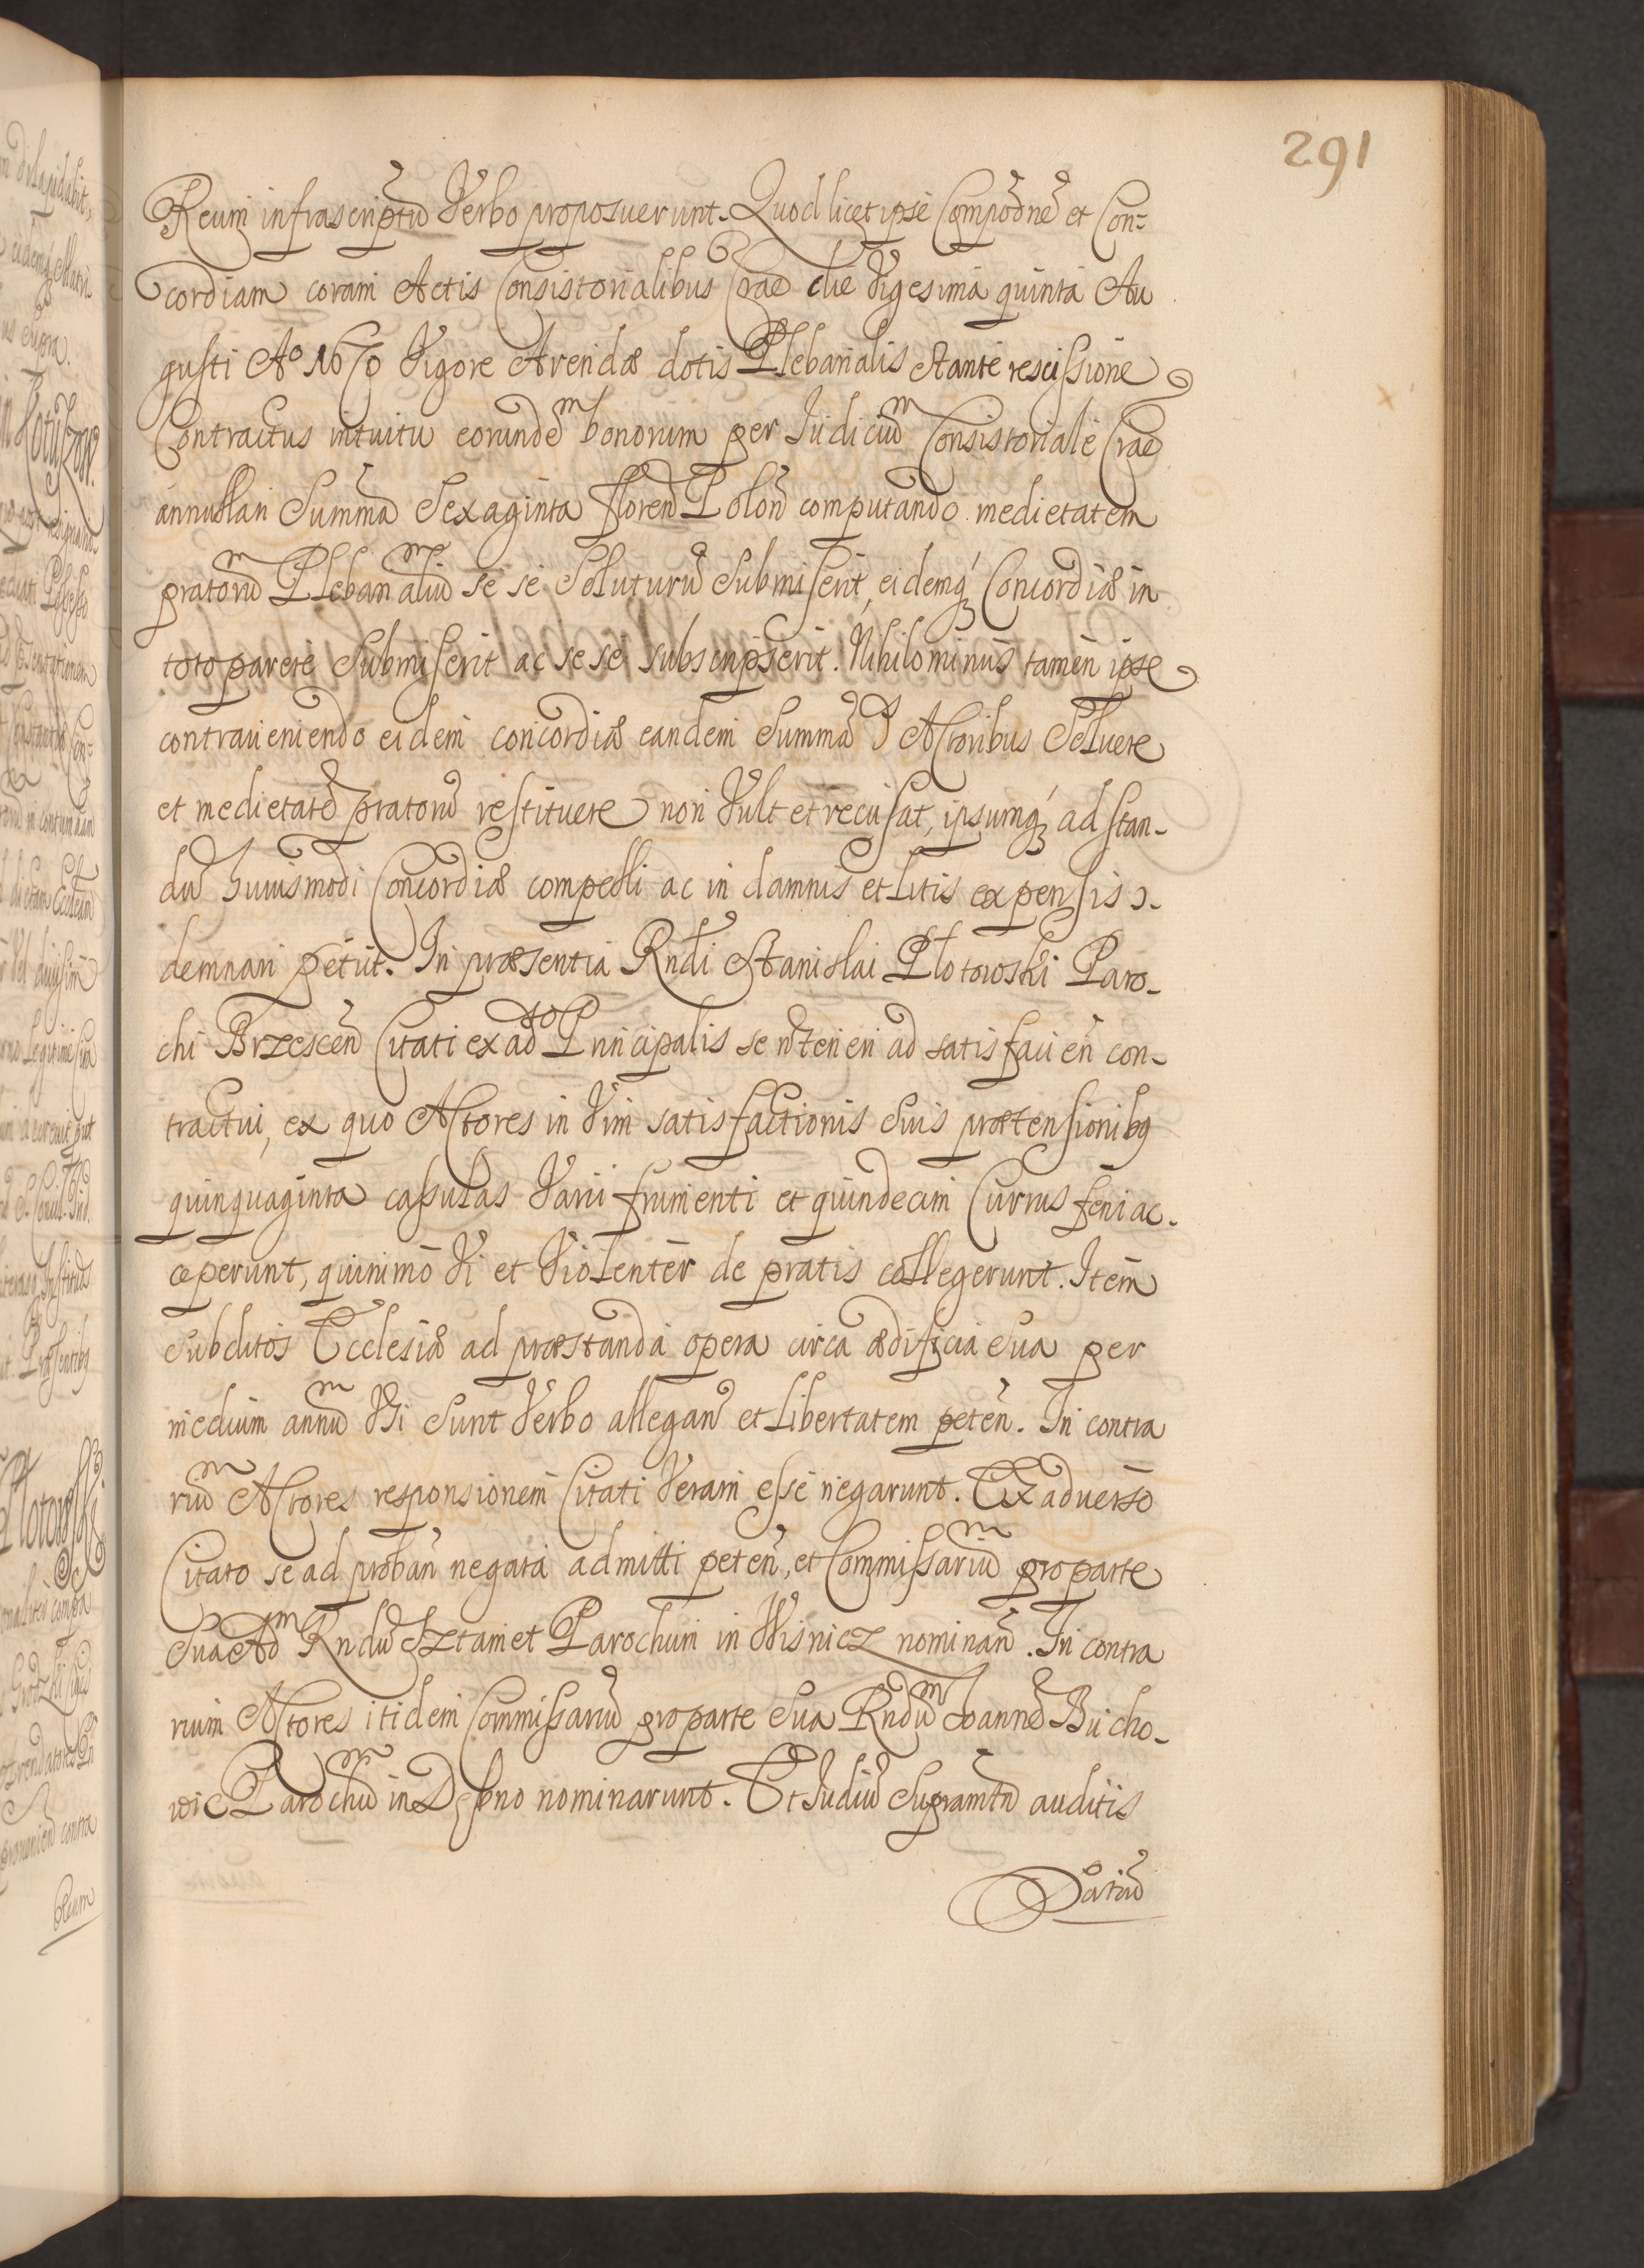 291
Reum infrascriptū Verbo proposuerunt. Quod licet ipse Compōnē et Con-
cordiam coram Actis Consistorialibus Crac die Vigesima quinta Au
gusti Aº 1670 Vigore Arendæ dotis Plebanalis stante rescissione
Contractus intuitu eorundē bonorum per Iudiciū Consistoriale Crac
annullari Summā Sexaginta floren Polon computando medietatem
pratorū Plebanaliū se se Soluturū Submiserit, eidemq Concordiæ in
toto parere Submiserit ac se se subscripserit. Nihilominus tamen ipse
contraueniendo eidem concordiæ eandem Summā Actoribus Soluere
et medietatē pratorū restituere non Vult et recusat, ipsumq ad stan-
dū huiusmodi Concordiæ compelli ac in damnis et Litis expensis ɔ-
demnari petiit. In præsentia Rndi Stanislai Plotowski Paro-
chi Brzescen Citati ex adto Principalis se n̄ teneri ad satisfacien con-
tractui, ex quo Actores in Vim satisfactionis Suis prætensionibq
quinquaginta cassulas Varii frumenti et quindecim Currus feni ac-
ceperunt, quinimo Vi et Violenter de pratis collegerunt. Item
Subditos Ecclesiæ ad præstanda opera circa ædificia Sua per
medium annū Vsi Sunt Verbo allegan et Libertatem peten. In contra
riū Actores responsionem Citati Veram esse negarunt. Ex aduerso
Citato se ad proban negata admitti peten, et Commissariū pro parte
Sua Adm Rndū Sztamet Parochum in Wisnicz nominan. In contra
rium Actores itidem Commissariū pro parte Sua Rndū Joannē Bucho-
wic Parochū in Dębno nominarunt. Et Iudiū Supramtū auditis
Partiū